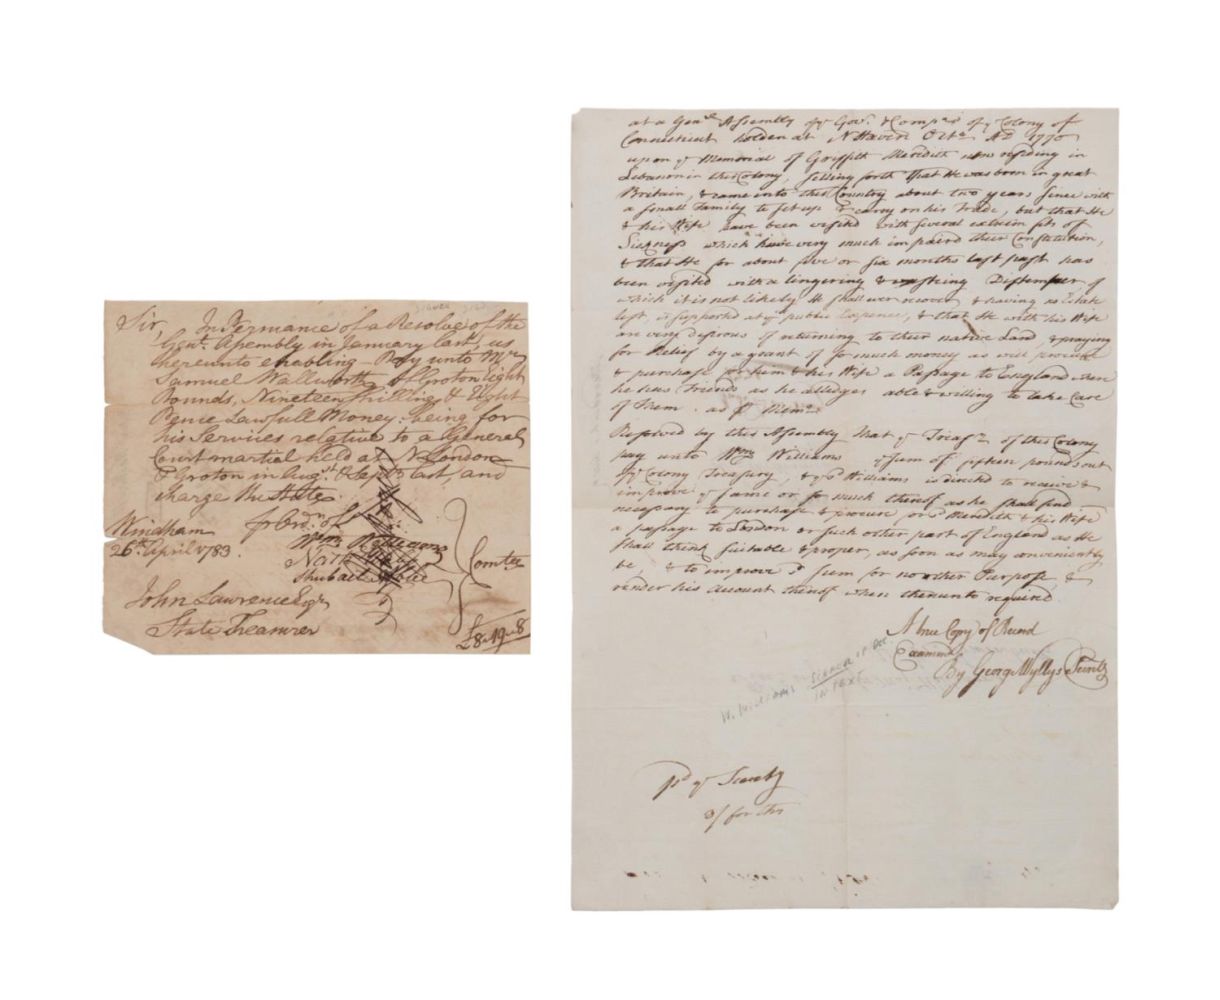 Sir, In Permance of a Resolve of the
Genl. Assembly in January last, us
hereunto enabling Pay unto Mr
Samuel Wallworth of Groton Eight
Pounds, Nineteen shillings & Eight
Pence Lawfull Money. being for
his Services relative to a General
Court martial held at N London
& Groton in Augst & Sepr last, and
charge the State.
Windham
26th April 1783.
Wm Williams
Comtee
John Lawrence Esqr
State Treasurer
£8..19..8
at a Genl Assembly of ye Govr. & Compa of ye Colony of
Connecticut holden at N Haven Octr AD 1770
upon ye Memorial of Griffith Meredith now residing in
Lebanon in this Colony, setting forth that He was born in great
Britain, & came into this Country about two years since with
a small Family to set up & carry on his Trade, but that He
& his Wife have been visited with several extreem fits of
Sickness which have very much impaird their Constitution,
& that He for about five or six months last past has
been visited with a lingering & wasting Distemper of
which it is not likely He shall ever recover & having no Estate
left, is supported at ye public Expence, & that He with his Wife
are very desirous of returning to their native Land, & praying
for Relief by a grant of so much money as will procure
& purchase for him & his Wife a Passage to England where
he has Friends as he alledges able & willing to take Care
of Them. as pr Memo
Resolved by this Assembly that ye Treasr of this Colony
pay unto Wm Williams ye sum of fifteen pounds out
of ye Colony Treasury, & sd Williams is directed to receive &
improve ye same or so much thereof as he shall find
necessary to purchase & procure for sd Meredith & his Wife
a passage to London or such other part of England as He
shall think suitable & proper, as soon as may conveniently
be, & to improve sd sum for no other Purpose &
render his account thereof when thereunto required.
A true Copy of Record
Examind
By George Wyllys Secretr
W. Williams signed
in text